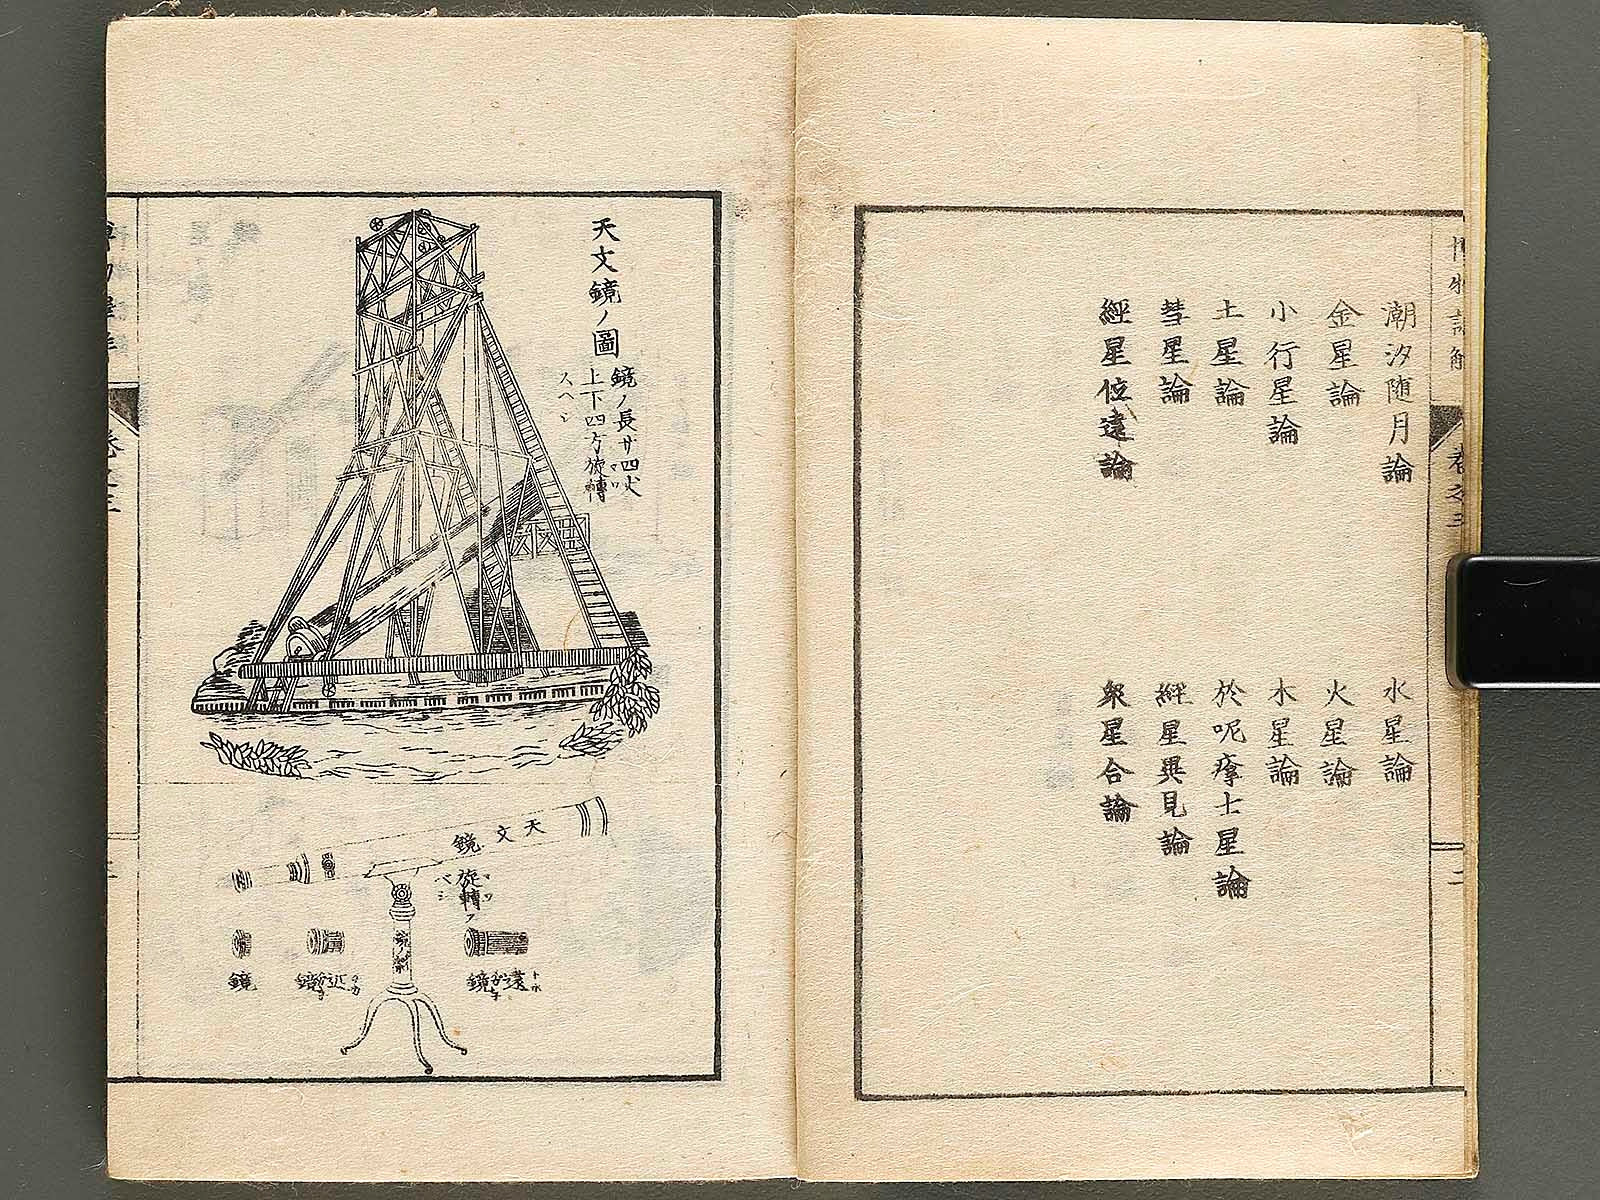 潮汐随月論
水星論
金星論
火星論
小行星論
木星論
土星論
於呢㾗士星論
彗星論
經星異見論
經星位遠論
衆星合論
卷之三
二
天文鏡ノ圖
鏡ノ長サ四丈
上下四方旋轉
スヘシ
天文鏡
旋轉
スベシ
遠鏡
近鏡
鏡
卷之三